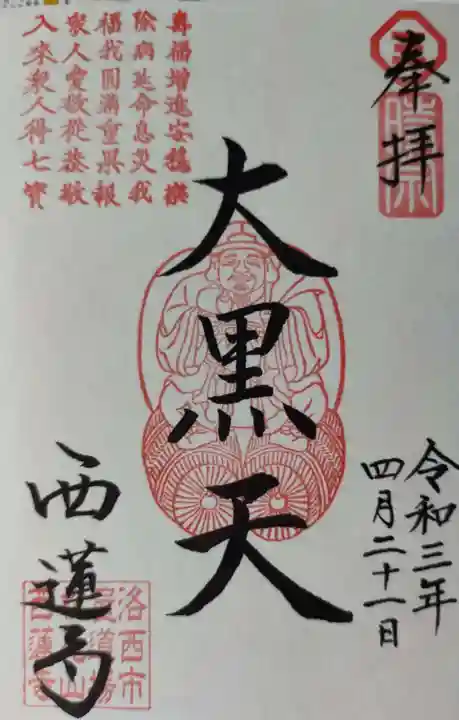 奉拝
令和三年
四月二十一日
大黒天
壽福增進安穩樂
除病延命息災我
福我圓滿重果報
衆人愛敬從恭敬
入來衆人得七寶
西蓮寺
洛西市